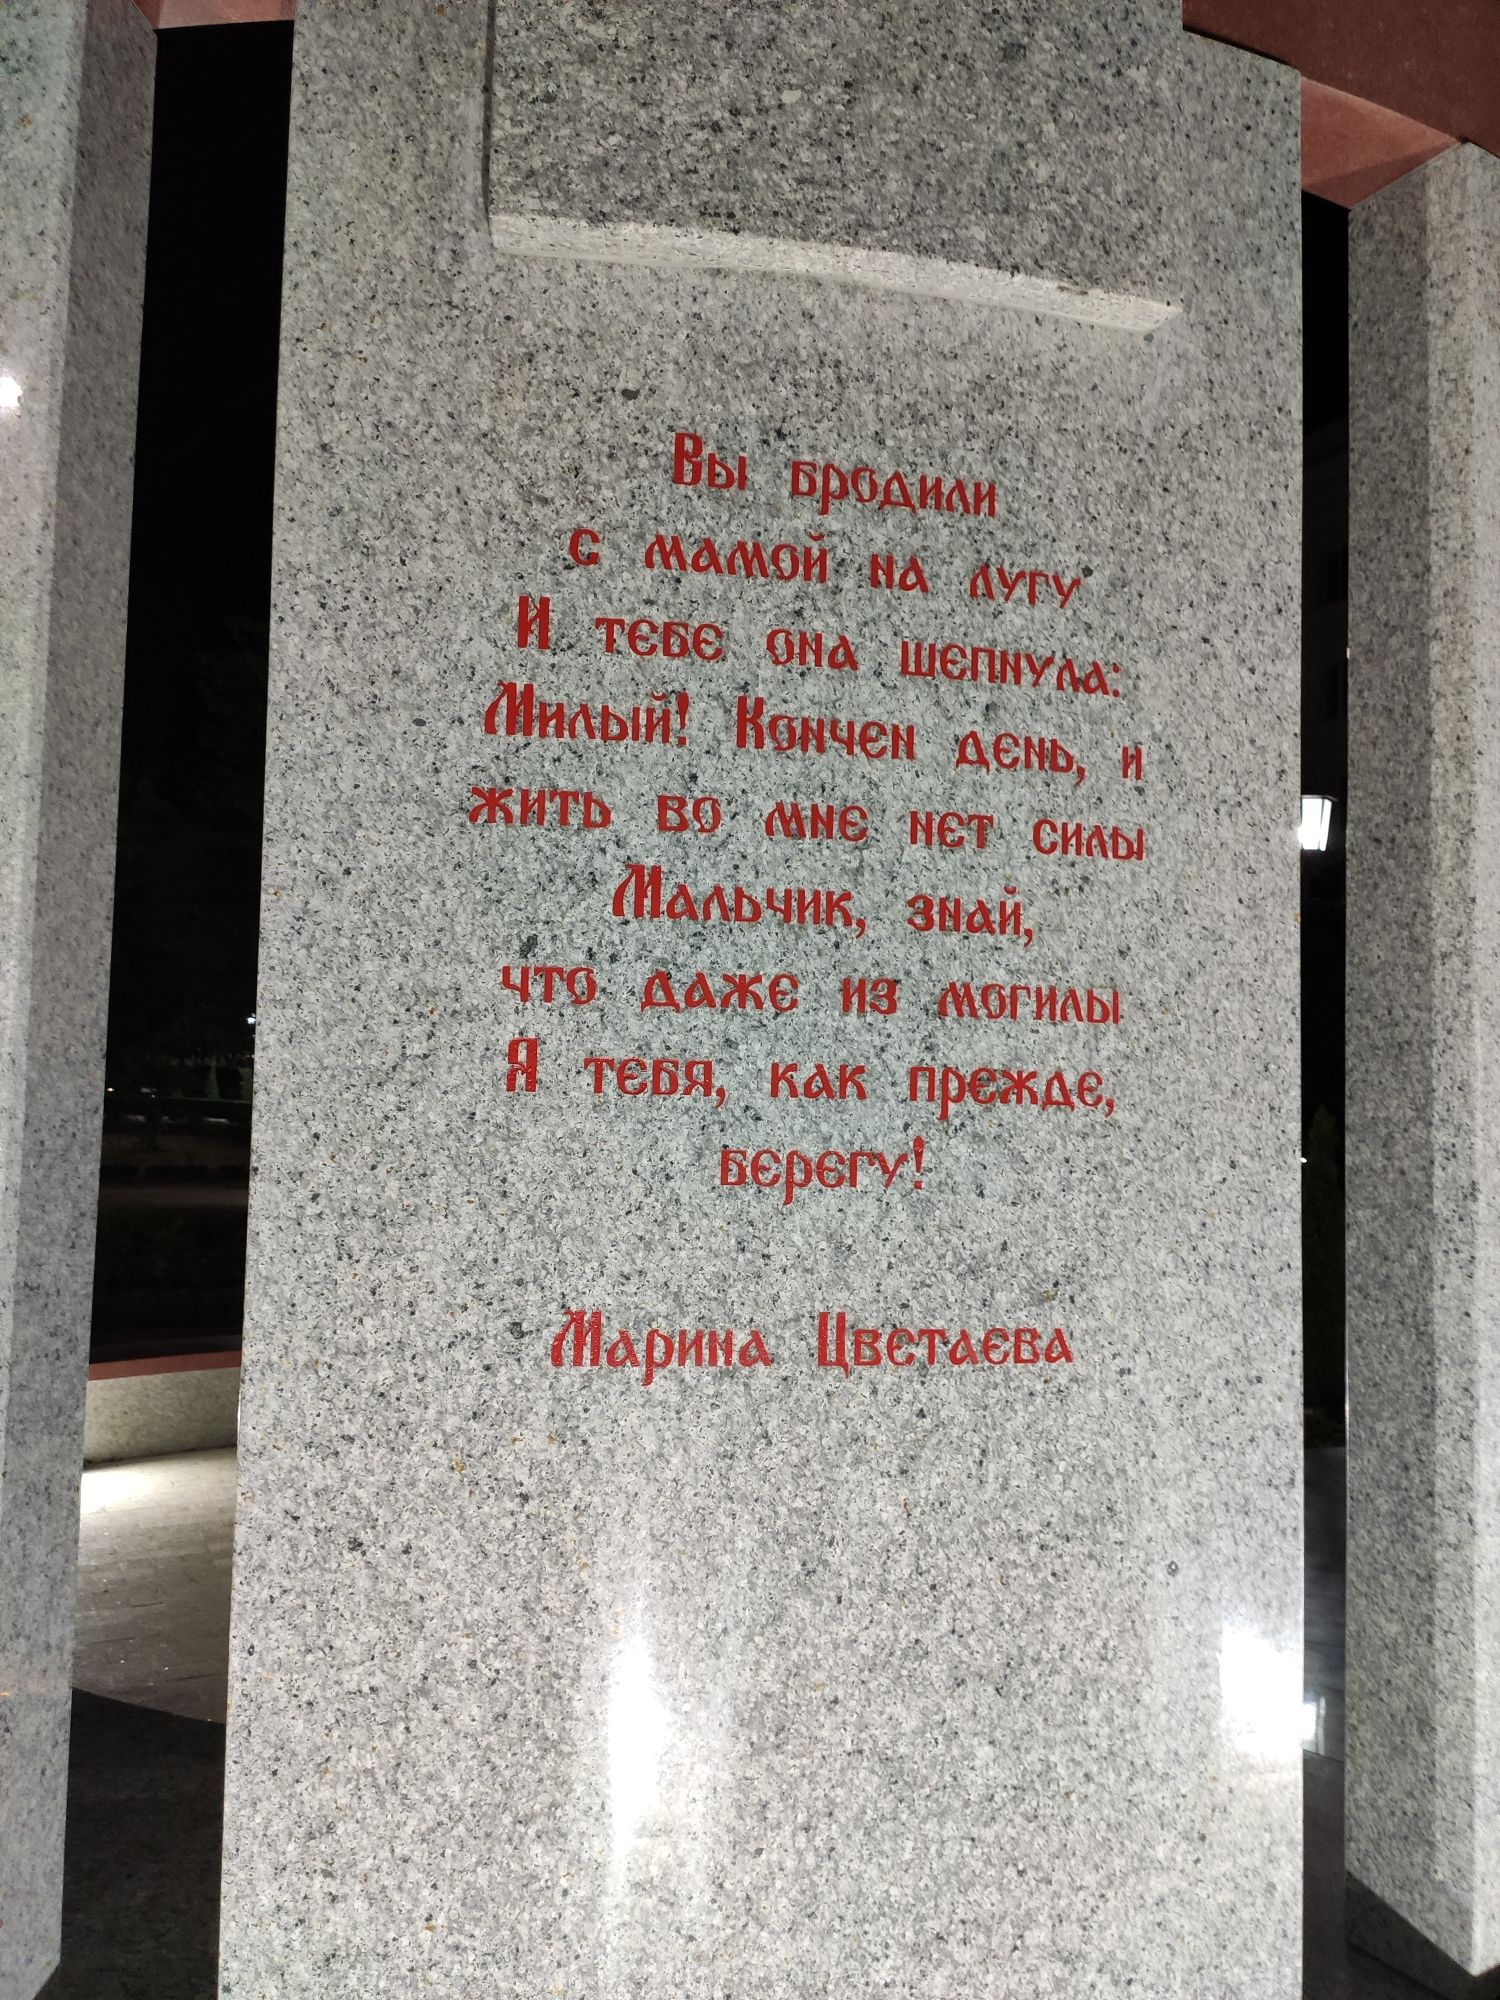 Вы бродили
с мамой на лугу
И тебе она шепнула:
Милый! Кончен день, и
жить во мне нет силы
Мальчик, знай,
что даже из могилы
Я тебя, как прежде,
берегу!
Марина Цветаева